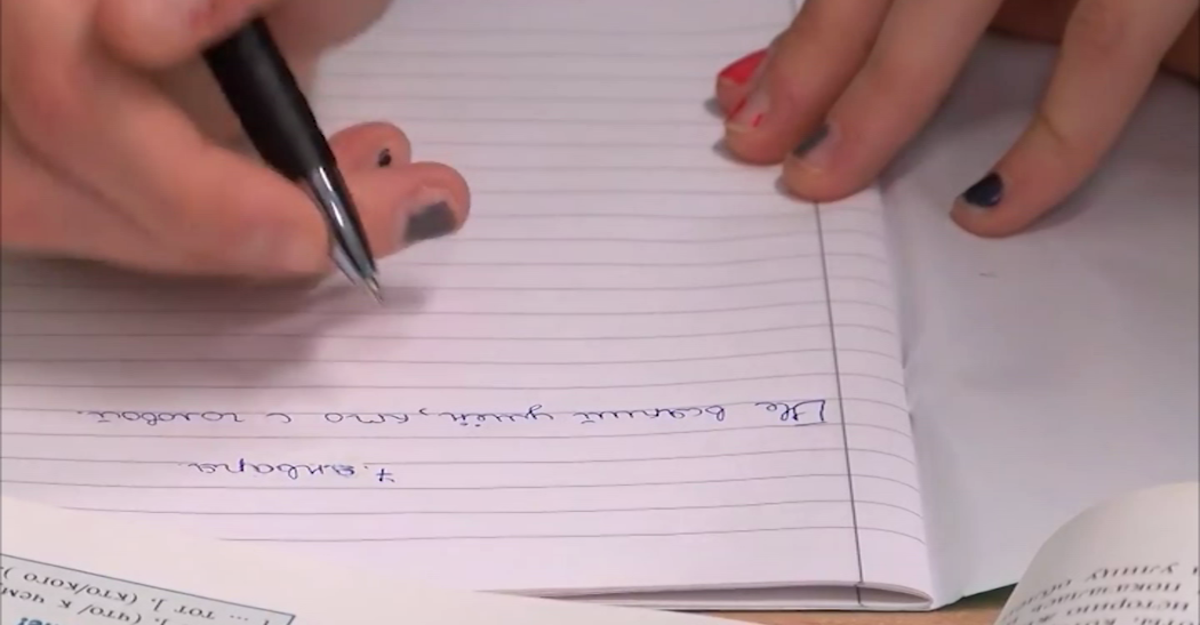 7. января.
Не всякий умён, кто с головой.
(что/к чем
... тот ], (кто/кого )
историю
показалась
улицу